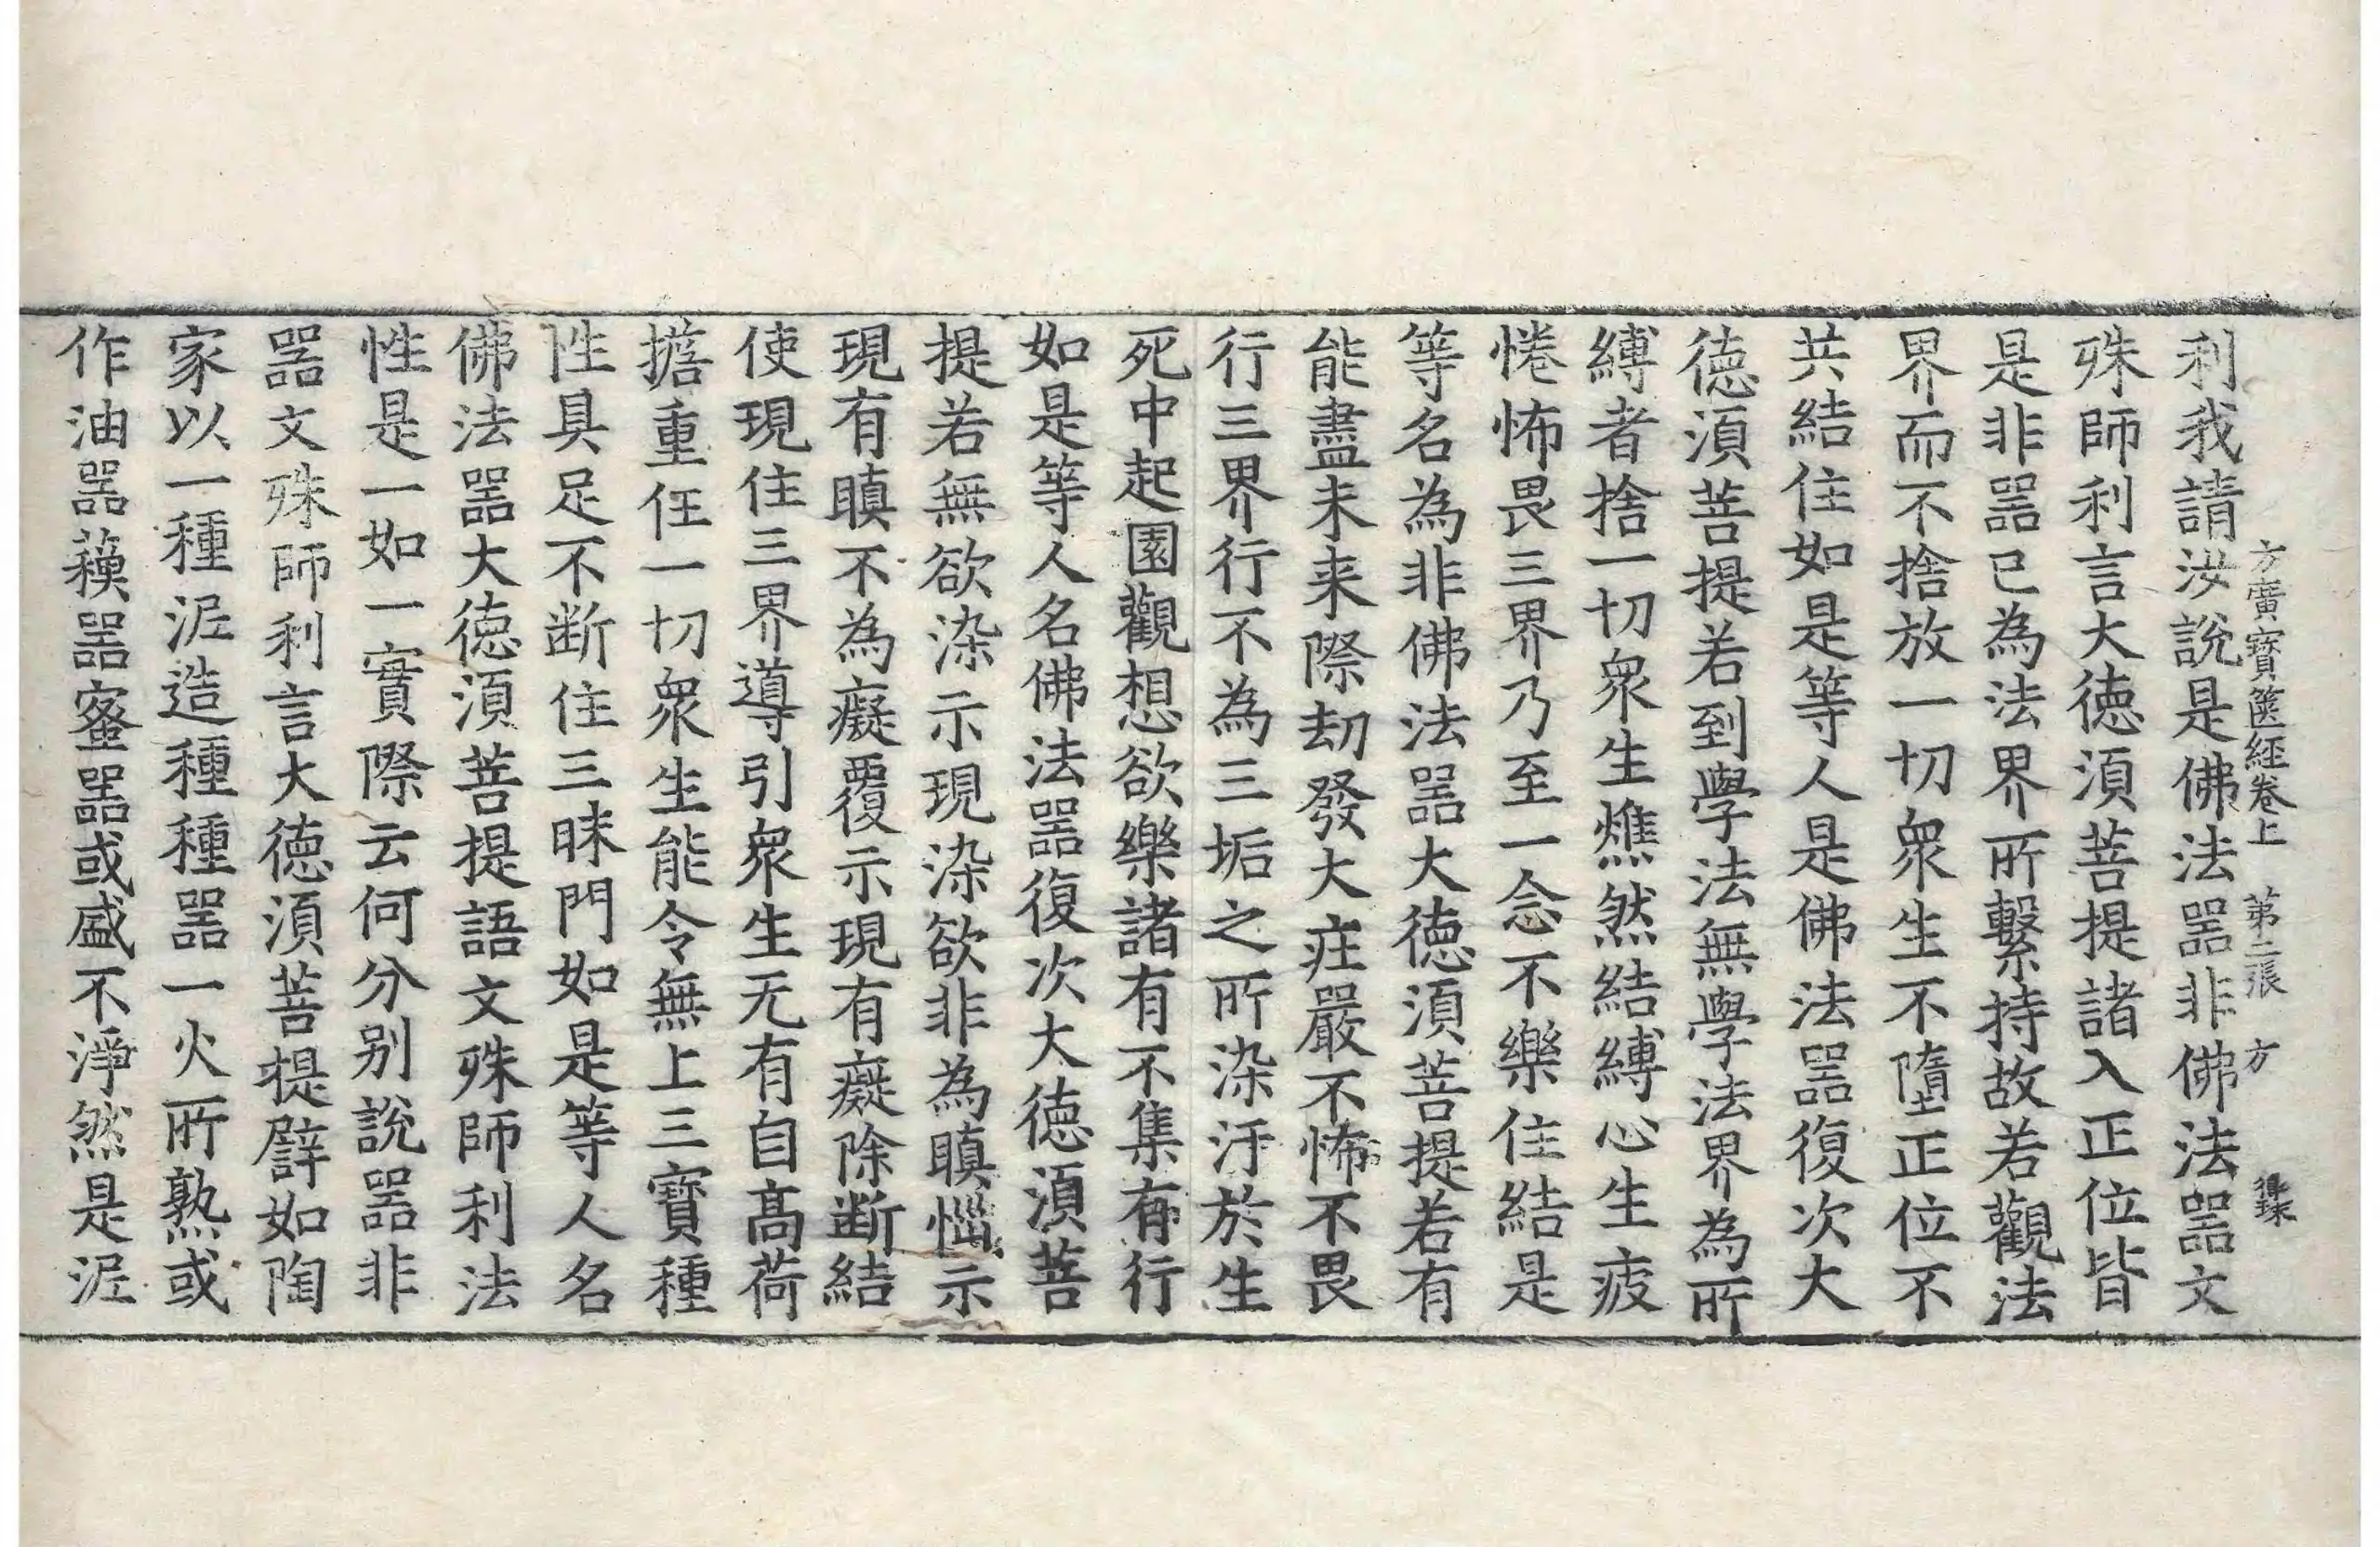 方廣寶篋經卷上　第二張　方
利我請汝說是佛法器非佛法器文
殊師利言大德須菩提諸入正位皆
是非器已為法界所繫持故若觀法
界而不捨放一切眾生不墮正位不
共結住如是等人是佛法器復次大
德須菩提若到學法無學法界為所
縛者捨一切眾生燋然結縛心生疲
惓怖畏三界乃至一念不樂住結是
等名為非佛法器大德須菩提若有
能盡未来際劫發大庄嚴不怖不畏
行三界行不為三垢之所染汙於生
死中起園觀想欲樂諸有不集有行
如是等人名佛法器復次大德須菩
提若無欲染示現染欲非為瞋惱示
現有瞋不為癡覆示現有癡除断結
使現住三界導引眾生无有自高荷
擔重任一切眾生能令無上三寶種
性具足不断住三昧門如是等人名
佛法器大德須菩提語文殊師利法
性是一如一實際云何分别說器非
器文殊師利言大德須菩提譬如陶
家以一種泥造種種器一火所熟或
作油器蘓器蜜器或盛不淨然是泥